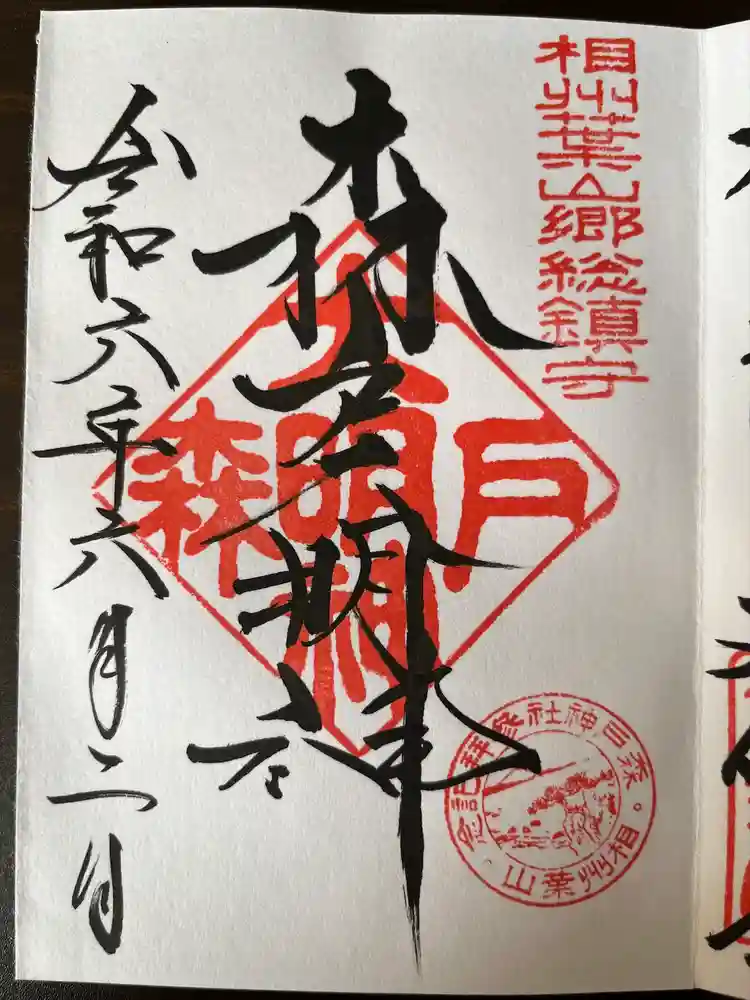 相州葉山郷総鎮守
森戸大明神
森戸大明神
森戸神社参拝記念
相州葉山
令和六年六月二日